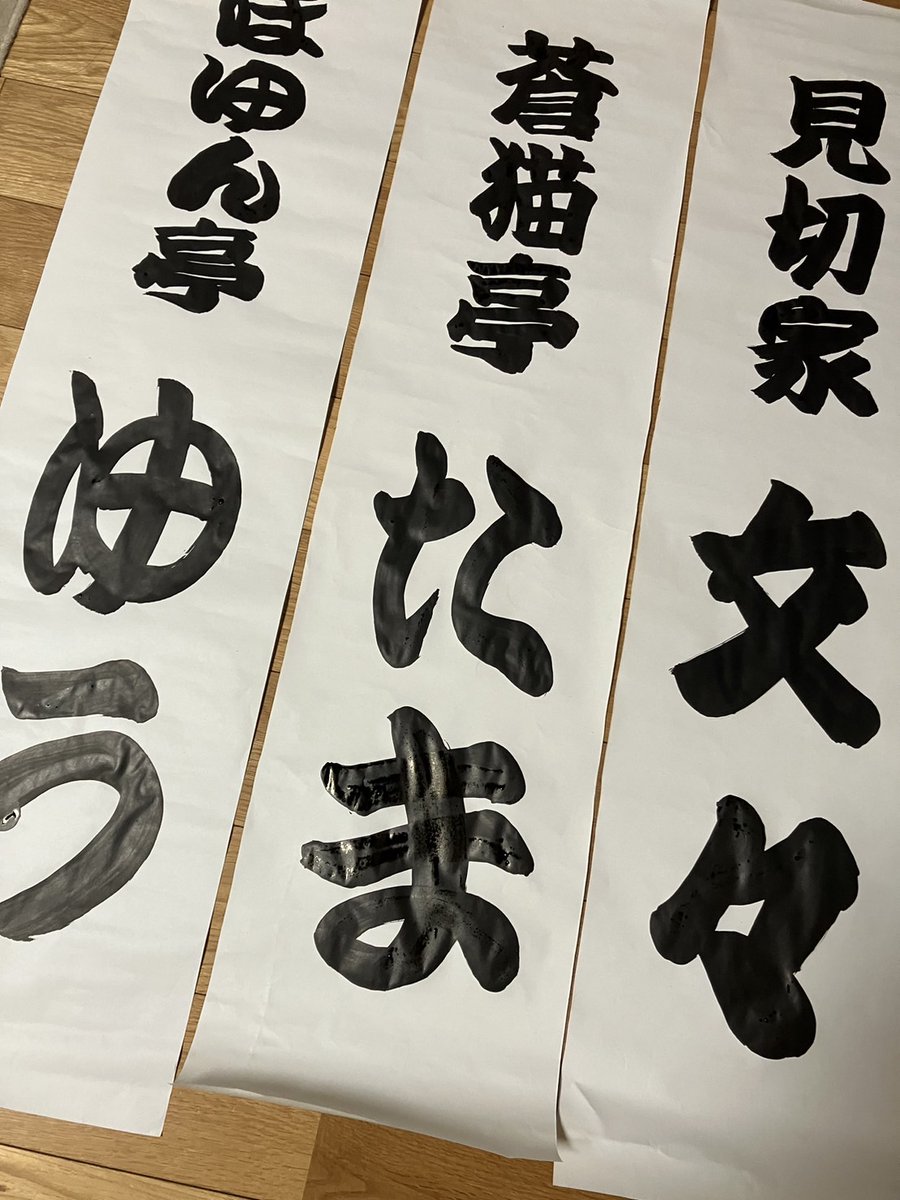 見切家 文々
蒼猫亭 たま
ゆん亭 ゆう